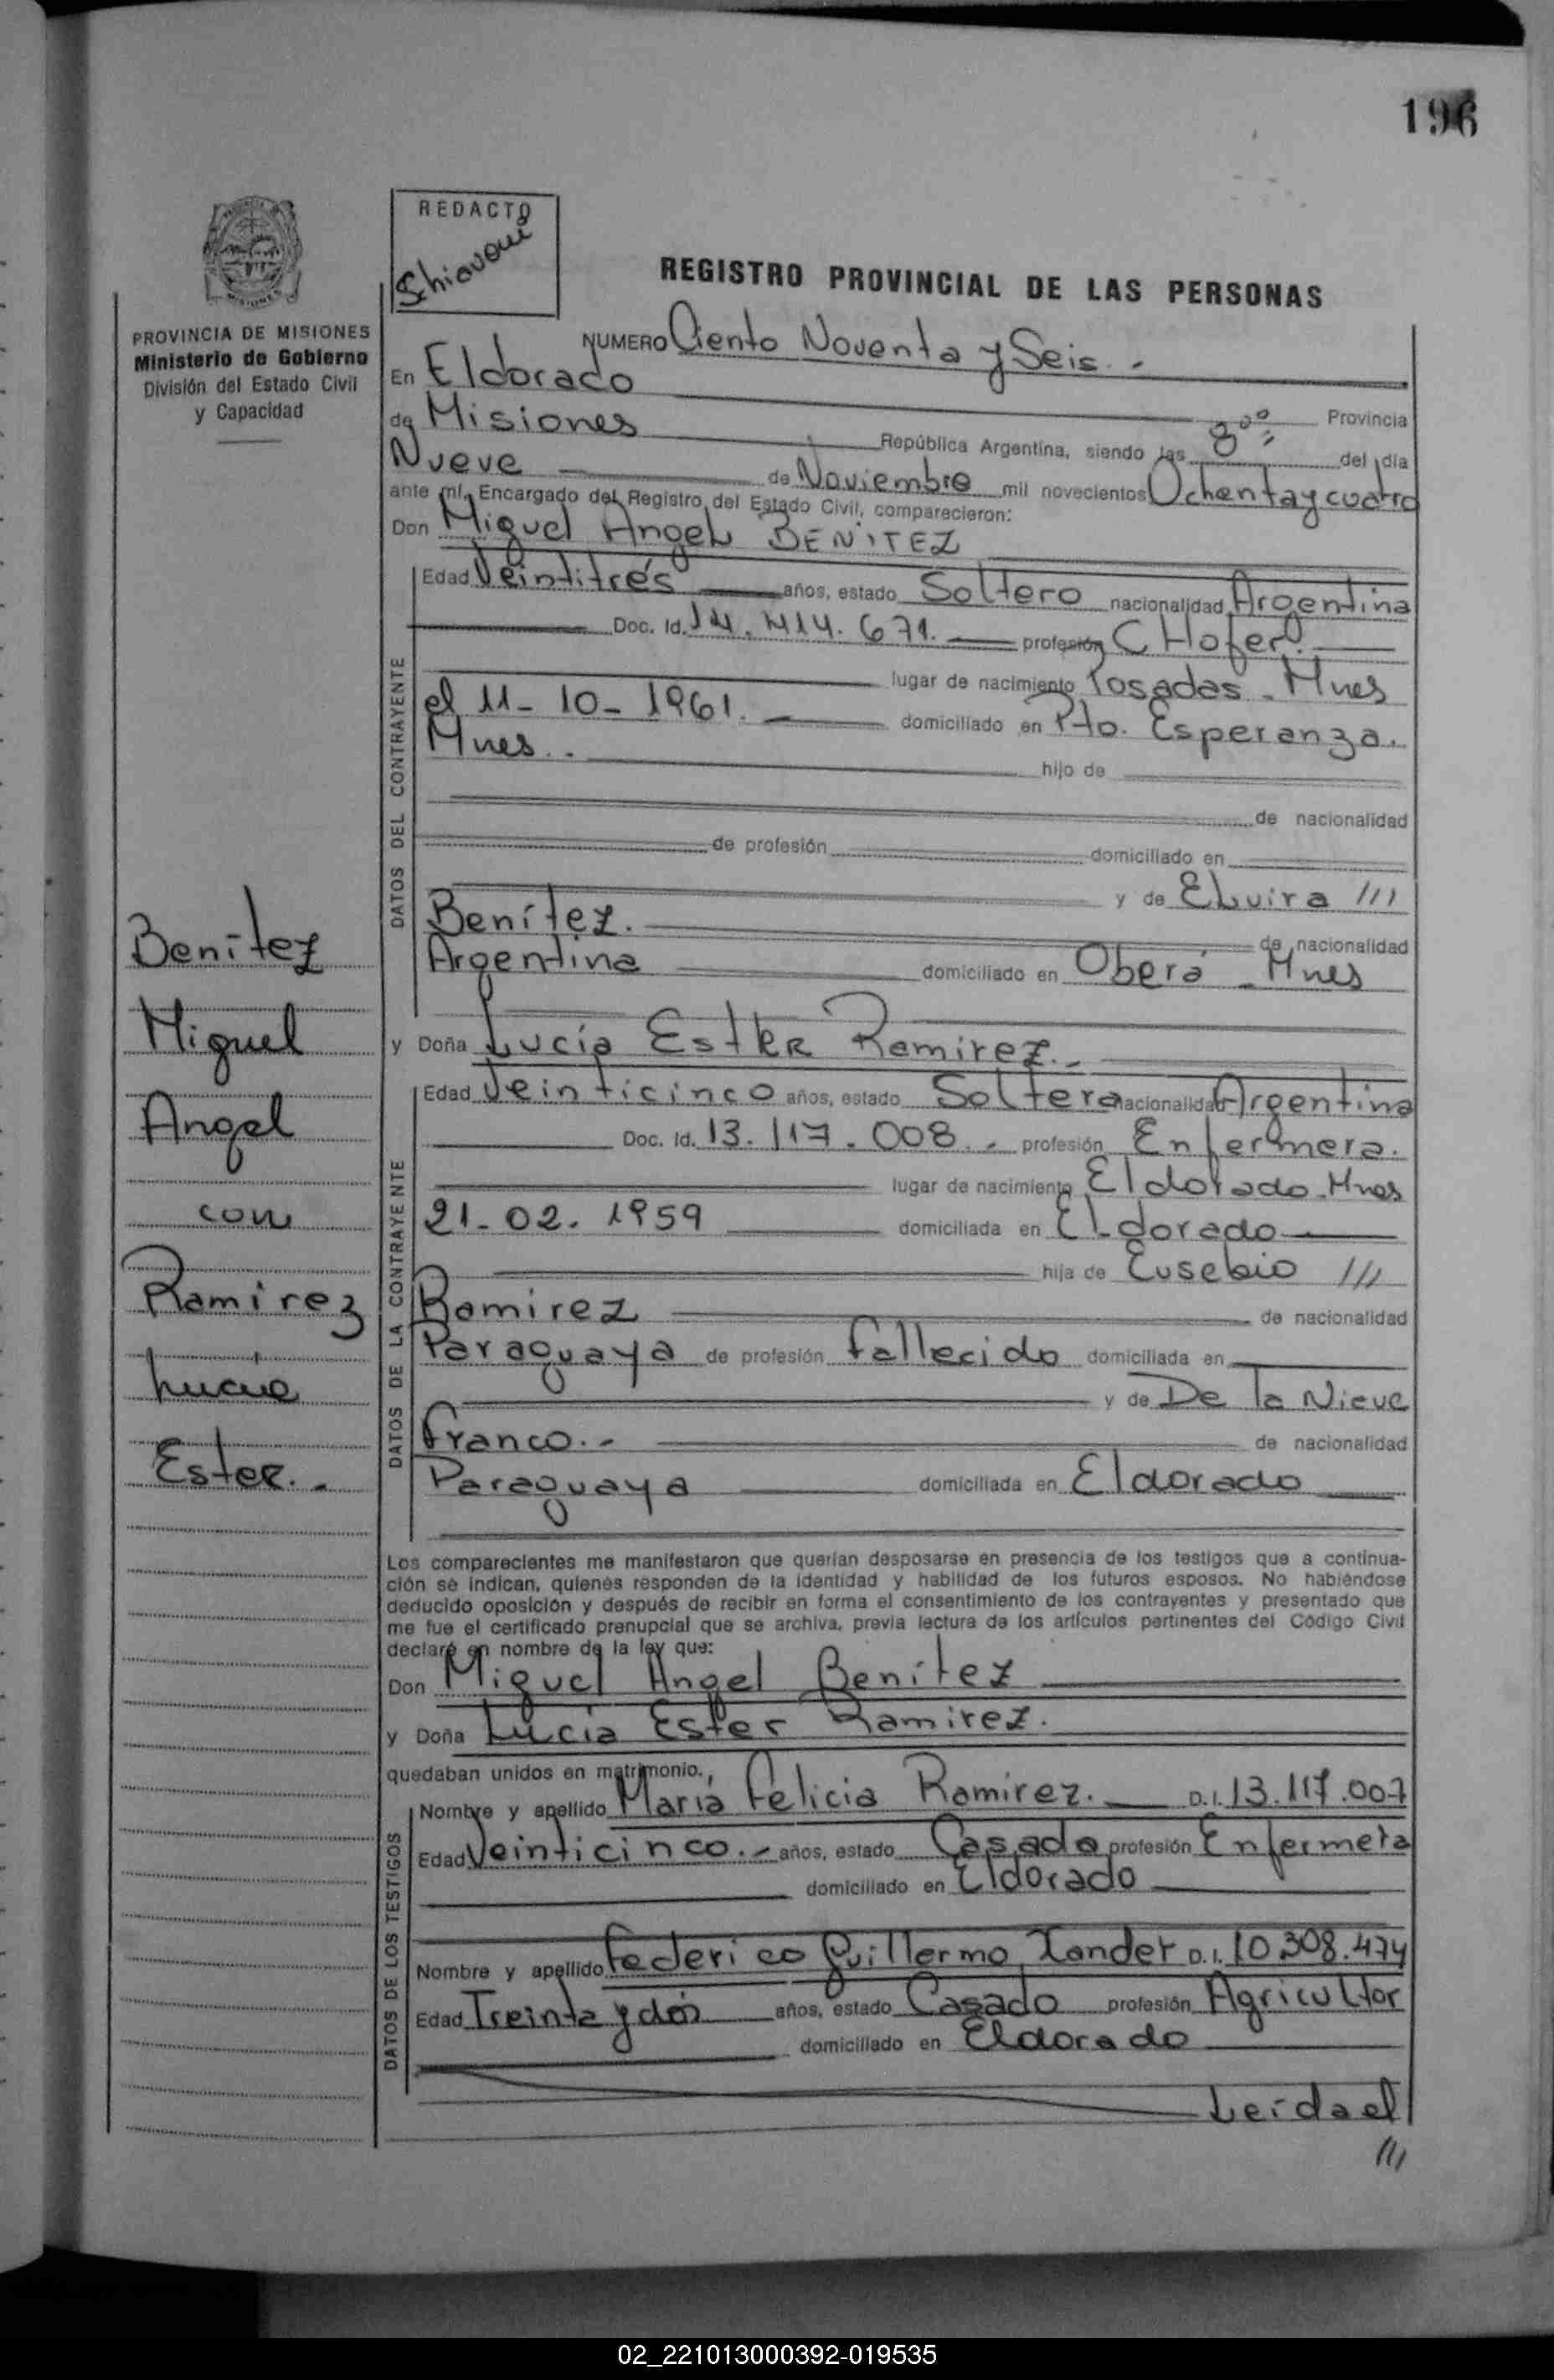 196
REDACTO
REGISTRO PROVINCIAL DE LAS PERSONAS
PROVINCIA DE MISIONES
Ministerio de Gobierno
División del Estado Civil
y Capacidad
NUMERO Ciento Noventa y Seis. -
En Eldorado Provincia
de Misiones República Argentina, siendo las 8°° del día
Nueve de Noviembre mil novecientos Ochenta y cuatro
ante mí, Encargado del Registro del Estado Civil, comparecieron:
Don Miguel Angel BENITEZ
DATOS DEL CONTRAYENTE
Edad Veintitrés años, estado Soltero nacionalidad Argentina
Doc. Id. 671. profesión CHofer.
lugar de nacimiento Posadas - Mnes
el 11-10-1961. domiciliado en Pto. Esperanza.
Mnes. - hijo de
de nacionalidad
de profesión domiciliado en
y de Elvira ///
Benítez. de nacionalidad
Argentina domiciliado en Oberá - Mnes
y Doña Lucía Ester Ramirez. -
DATOS DE LA CONTRAYENTE
Edad Veinticinco años, estado Soltera nacionalidad Argentina
Doc. Id. 13.117.008. - profesión Enfermera.
lugar de nacimiento Eldorado - Mnes
21-02. 1959 domiciliada en Eldorado
hija de Eusebio ///
Ramirez de nacionalidad
Paraguaya de profesión fallecido domiciliada en
y de De la Nieve
Franco. - de nacionalidad
Paraguaya domiciliada en Eldorado
Benitez
Miguel
Angel
con
Ramirez
Lucia
Ester. -
Los comparecientes me manifestaron que querían desposarse en presencia de los testigos que a continua-
ción se indican, quienes responden de la identidad y habilidad de los futuros esposos. No habiéndose
deducido oposición y después de recibir en forma el consentimiento de los contrayentes y presentado que
me fue el certificado prenupcial que se archiva, previa lectura de los artículos pertinentes del Código Civil
declaré en nombre de la ley que:
Don Miguel Angel Benítez
y Doña Lucía Ester Ramirez.
quedaban unidos en matrimonio.,
DATOS DE LOS TESTIGOS
Nombre y apellido María Felicia Ramirez. D.I. 13.117.007
Edad Veinticinco. - años, estado Casada profesión Enfermera
domiciliado en Eldorado
Nombre y apellido Federico Guillermo Xander D.I. 10.308.474
Edad Treinta y dos años, estado Casado profesión Agricultor
domiciliado en Eldorado
Leída el
///
02_221013000392-019535